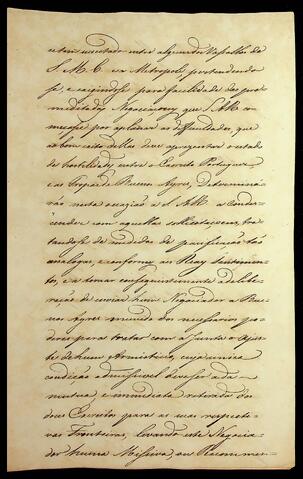 e tem suscitado entre alguns dos Vassallos de
S. M. C. na Metropoli, pretendendo
se, e exigindo-se para facilidade das pre
meditadas Negociaçoens que S. A. R. co
meçasse por aplanar as difficuldades, que
ao bom exito dellas deve aprezentar o estado
de hostilidades entre o Exercito Portuguez
e as Tropas de Buenos Ayres, Determina
rão nesta occazião a S. A. R. a Conde
scender com aquellas sollicitaçoens, tra
tandose de medidas de pacificação tão
analogas, e conformes aos Reaes Sentimen
tos, e a tomar conseguintemente a delibe
ração de enviar hum Negociador a Bue
nos Ayres munido dos necessarios po
deres para tratar com a Junta o Ajus
te de hum Armisticio, cuja unica
condição admissivel devesse ser a
mutua, e immediata retirada dos
dous Exercitos para as suas respecti
vas Fronteiras, levando este Negocia
dor huma Missiva, ou Recommen